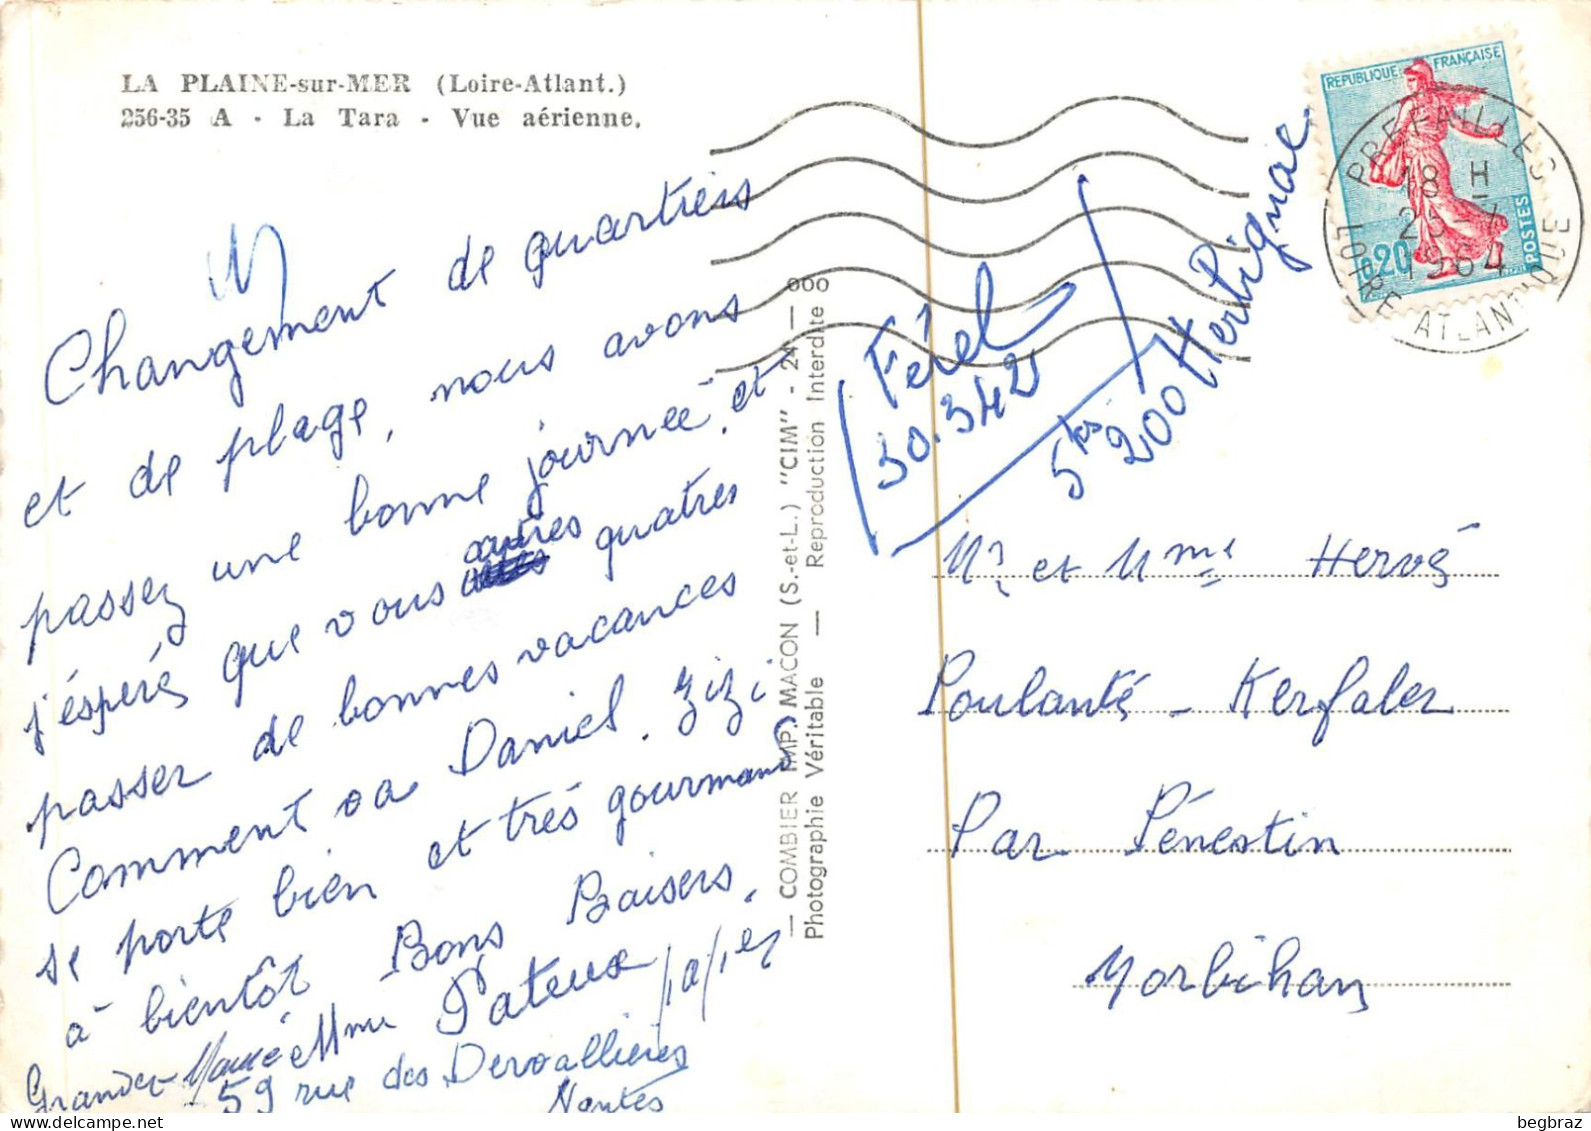 LA PLAINE-sur-MER (Loire-Atlant.)
256-35 A - La Tara - Vue aérienne.
Changement de quartiers
et de plage, nous avons
passez une bonne journeé, et
j'éspère que vous autres quatres
passer de bonnes vacances
Comment va Daniel. Zizi
se porte bien et très gourmand
à bientôt Bons Baisers.
Mme Pateux
59 rue des Dervallières
Nantes
— COMBIER IMP. MACON (S.-et-L.) "CIM" - 24 — 000
Photographie Véritable — Reproduction Interdite
Férel
30.342
5 kis
200 Herbignac
REPUBLIQUE FRANÇAISE
0,20
POSTES
PREFAILLES
18 H
25 -
1964
LOIRE ATLANTIQUE
Mr et Mme Hervé
Poulanté - Kerfaler
Par Pénestin
Morbihan
begbraz